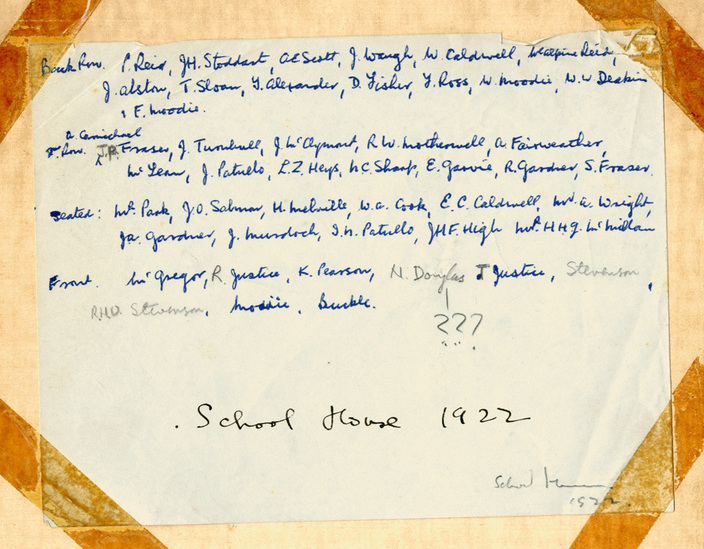 Back Row. P. Reid, J.H. Stoddart, A.E. Scott, J. Waugh, W. Caldwell, Reid,
J. Alston, T. Sloan, Y. Alexander, D. Fisher, Y. Ross, W. Moodie, W.W. Deakin
& E. Moodie.
A Carmichael
Row. J.R. Fraser, J. Turnbull, J. McClymont, R.W. Motherwell, A. Fairweather,
McLean, J. Patullo, L.Z. Heys, W.C. Sharp, E. Garvie, R. Gardner, S. Fraser.
Seated: Mr. Park, J.O. Salmon, H. Melville, W.A. Cook, E.C. Caldwell, Mr. A. Wright,
Gardner, J. Murdoch, I.N. Patullo, J.H.F. High Mr. H.H.G. McMillan
Front. McGregor, R. Justice, K. Pearson, N. Douglas J Justice, Stevenson,
R.H.D. Stevenson, Moodie, Buckle.
???
. School House 1922
School
1922.